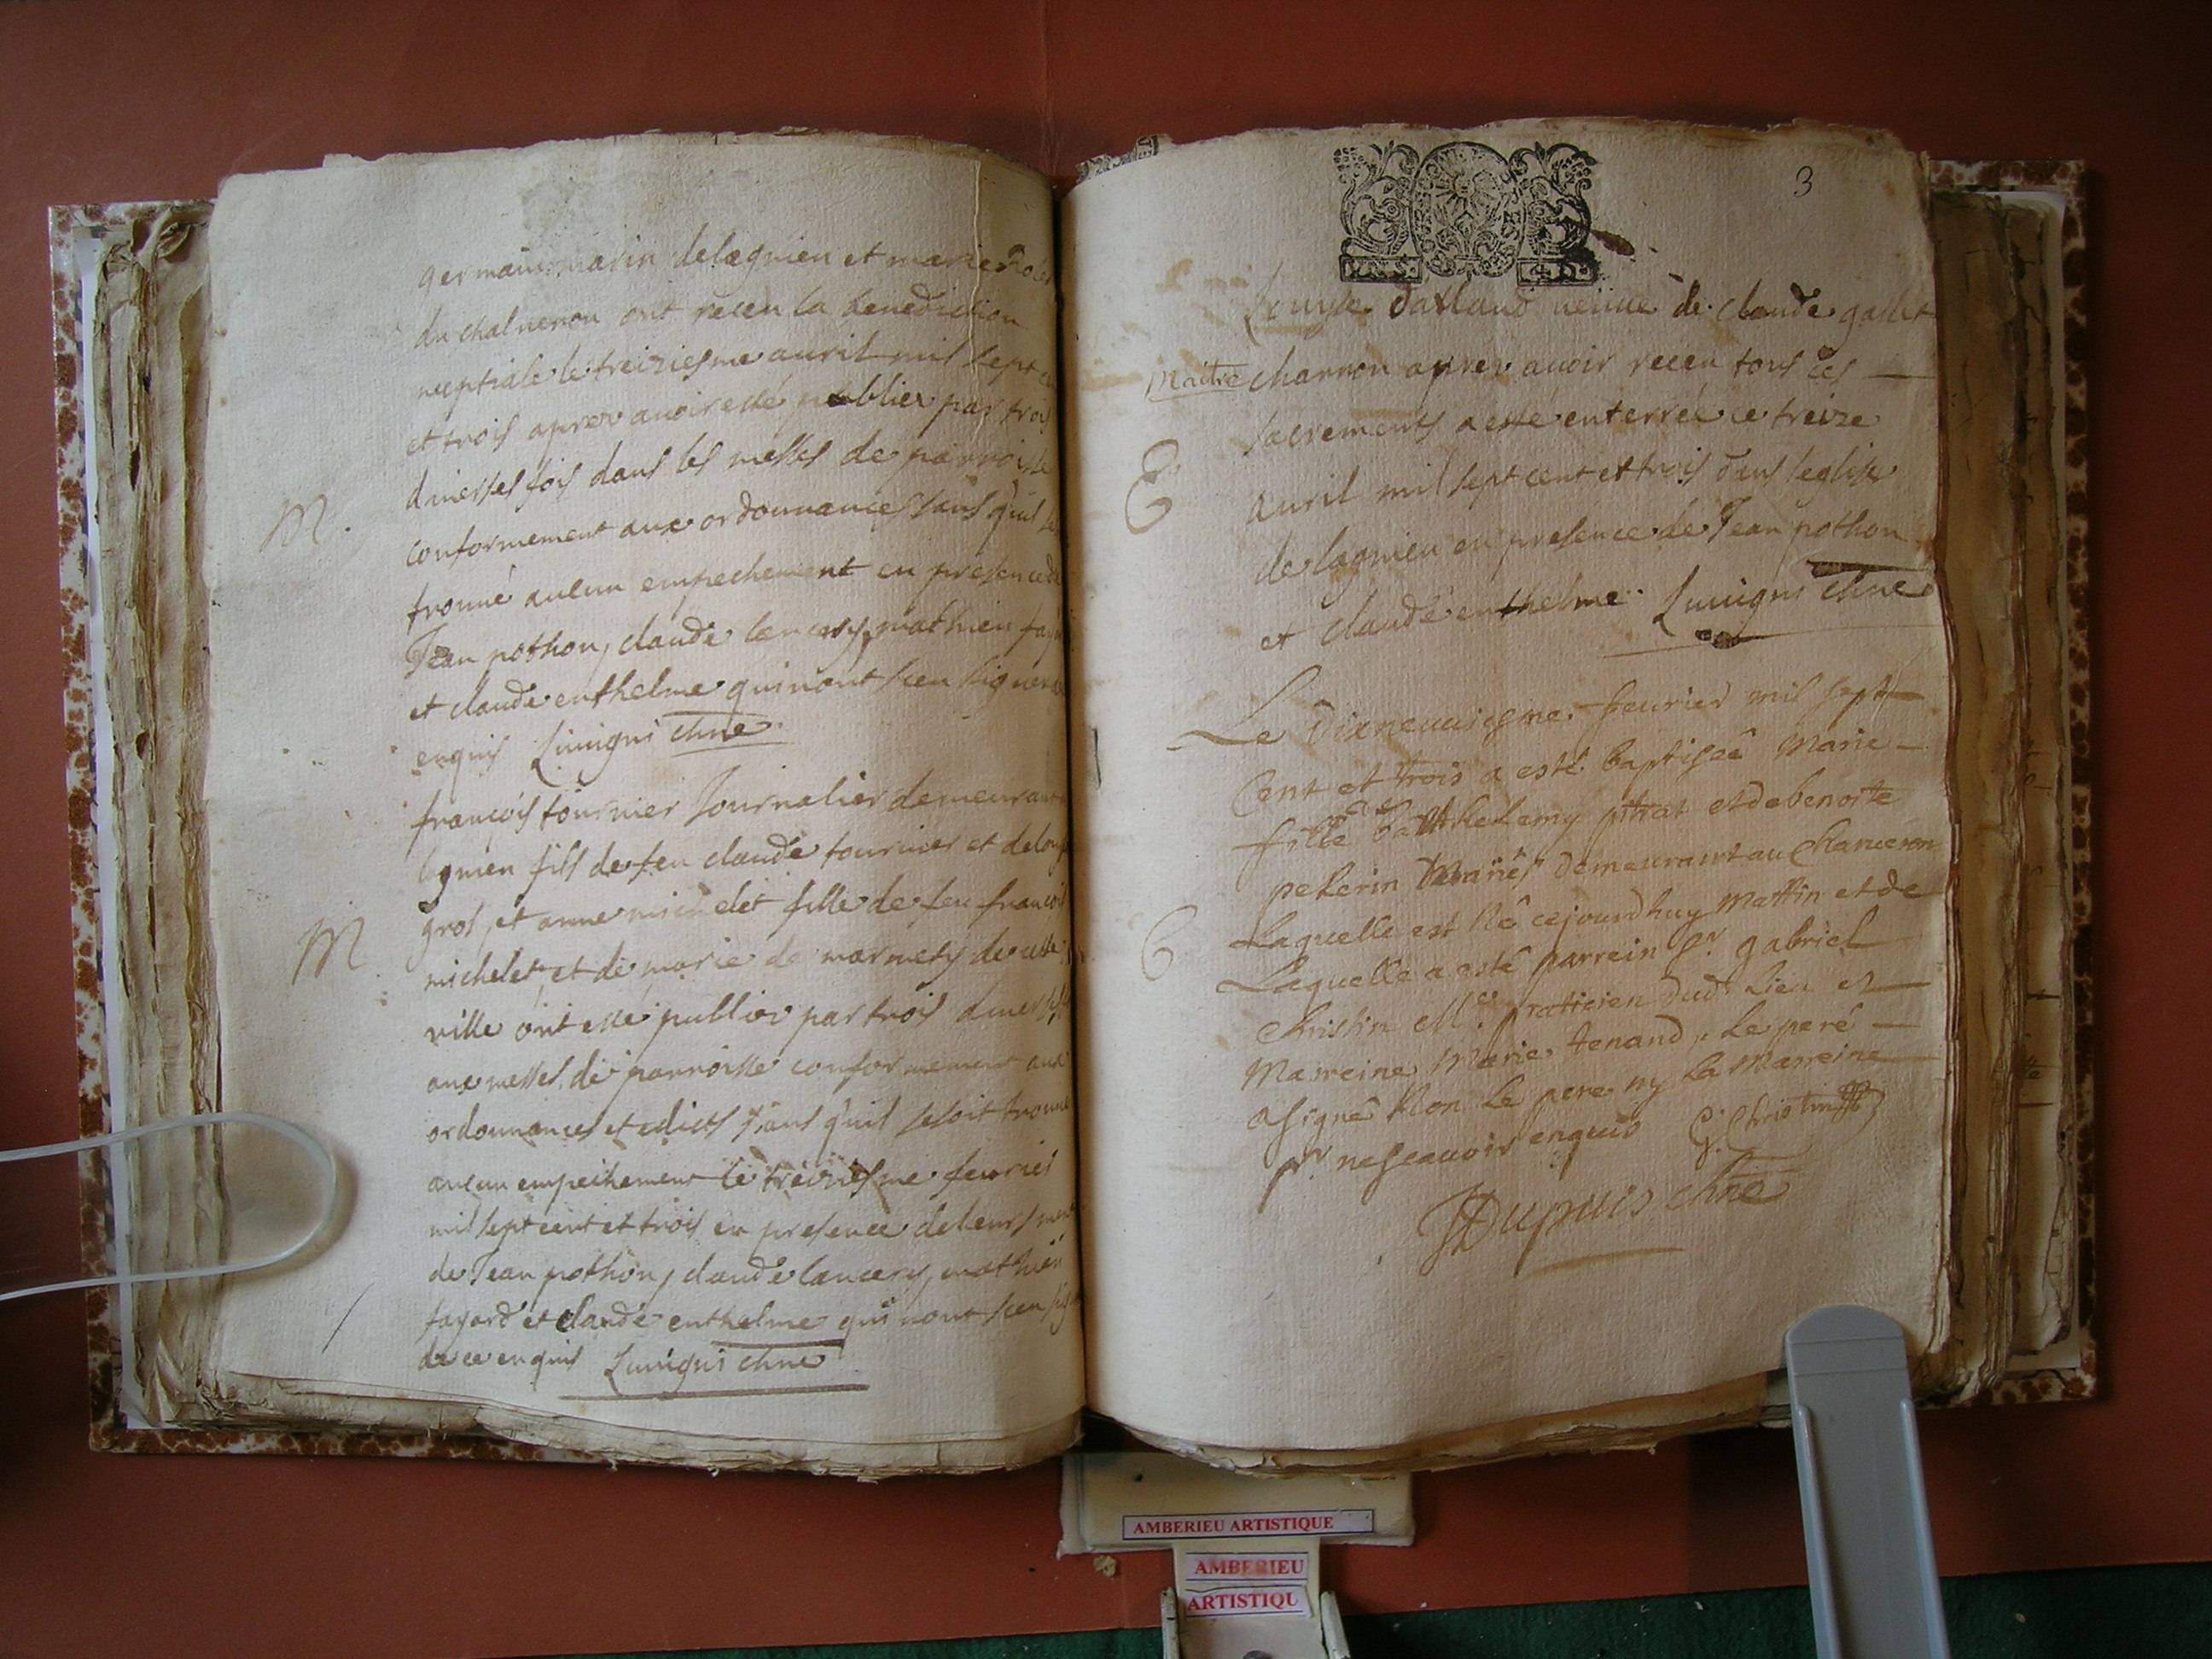 germain marin delagnieu et marie
du chalneron ont receu la benediction
nuptiale le treiziesme auril mil sept
et trois aprez auoir esté publiez par trois
diuerses fois dans les messes de parroisse
conformement aux ordonnances sans quil se
trouué aucun empechement en presence de
Jean pothon, claude lancery, mathieu
et claude enthelme qui nont sceu signer
enquis Liuvigni chne
M.
françois tournier Journalier demeurant
lagnieu fils de feu claude tournier et de
gros et anne michelet fille de feu françois
michelet, et de marie de marmety de cette
ville ont esté publiez par trois diuerses
aux messes de parroisse conformement aux
ordonnances et edicts sans quil se soit trouué
aucun empechement le treiziesme feurier
mil sept cent et trois en presence de leurs
de Jean pothon, claude lancery, mathieu
fayard et claude enthelme qui nont sceu
de ce enquis Liuvigni chne
M
3
Louyse datland veuue de claude gallet
Maitre charron aprez auoir receu tous ses
sacrements a esté enterrée ce treize
auril mil sept cent et trois dans leglise
de lagnieu en presence de Jean pothon
et claude enthelme Liuvigni chne
E
Le Dixneuuiesme feurier mil sept
Cent et trois a esté baptisée Marie
fille de barthelemy pitrat et de benoite
pelerin Mariés demeurant au Charveron
Laquelle est Né cejourdhuy Mattin et de
Laquelle a esté parrein Sr. gabriel
Christin Me. praticien dud. Lieu et
Marreine Marie tenand, Le perê
a signé Non Le pere ny La Marreine
pr. ne scauoir enquis G. Christin
B
JDupuis chne
AMBERIEU ARTISTIQUE
AMBERIEU
ARTISTIQU